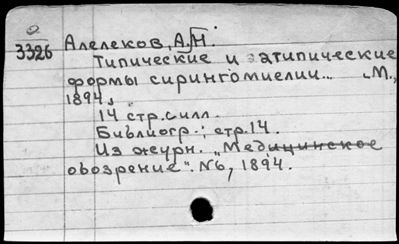 2
3326 Алелеков, А.Н.
Типические и атипические
формы сирингомиелии... М.,
1894.
14 стр. с илл.
Библиогр.: стр. 14.
Из журн. „Медицинское
обозрение". №6, 1894.